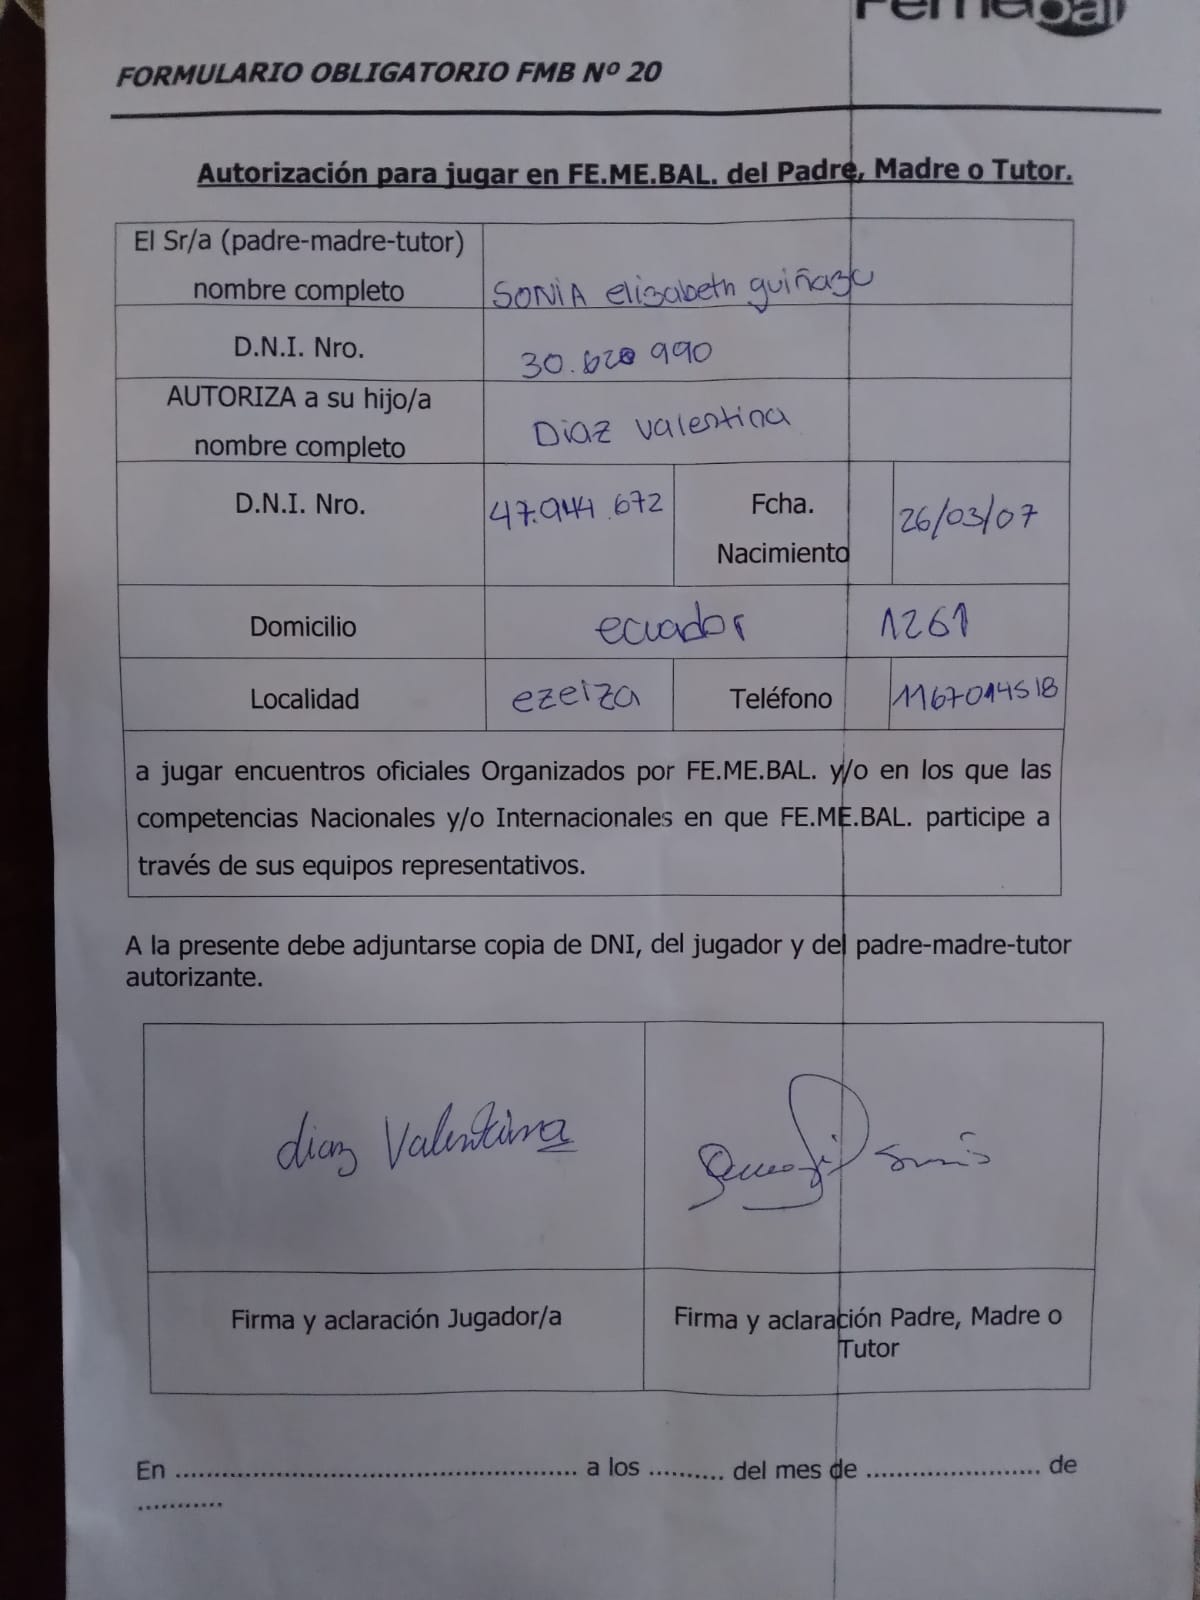 Femebal
FORMULARIO OBLIGATORIO FMB Nº 20
Autorización para jugar en FE.ME.BAL. del Padre, Madre o Tutor.
El Sr/a (padre-madre-tutor)
nombre completo
SONIA elizabeth guiñazu
D.N.I. Nro.
30.620 990
AUTORIZA a su hijo/a
nombre completo
Diaz Valentina
D.N.I. Nro.
47.944.672
Fcha.
Nacimiento
26/03/07
Domicilio
ecuador 1261
Localidad
ezeiza
Teléfono
1167014518
a jugar encuentros oficiales Organizados por FE.ME.BAL. y/o en los que las
competencias Nacionales y/o Internacionales en que FE.ME.BAL. participe a
través de sus equipos representativos.
A la presente debe adjuntarse copia de DNI, del jugador y del padre-madre-tutor
autorizante.
diaz Valentina
Firma y aclaración Jugador/a
Firma y aclaración Padre, Madre o
Tutor
En .................................................... a los .......... del mes de ....................... de
...........